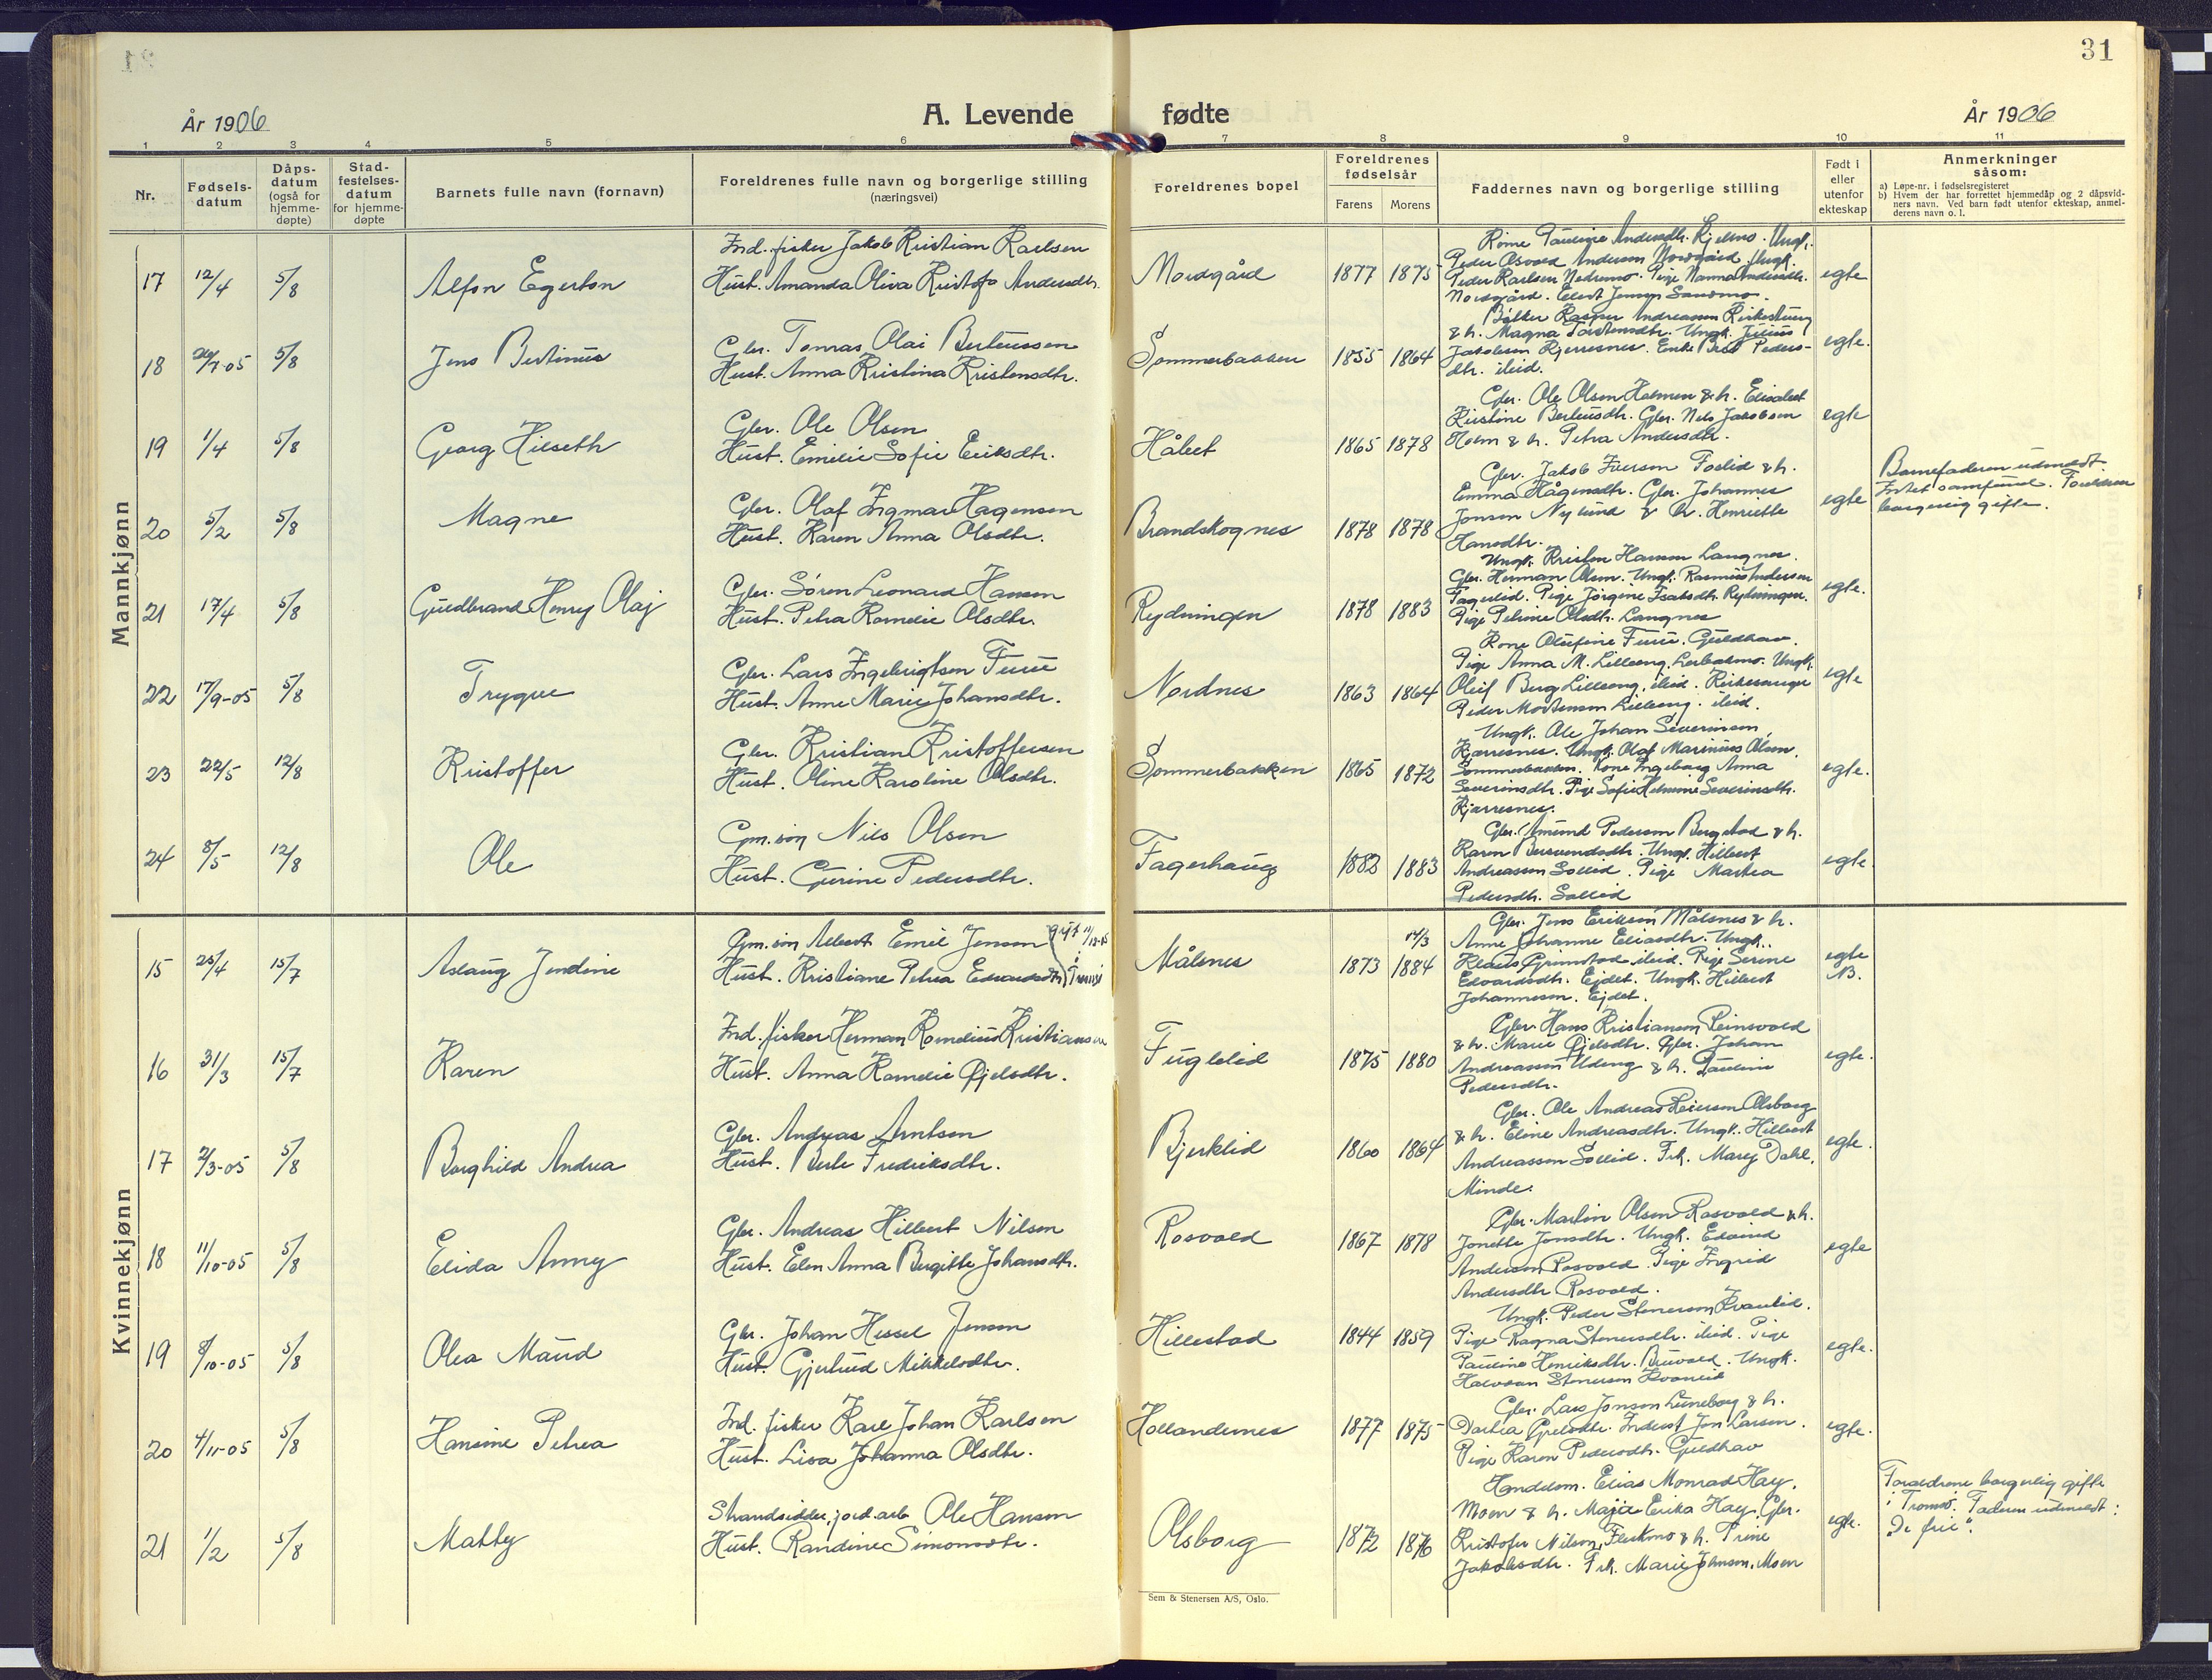 31
År 1906
A. Levende fødte
År 1906
1 2 3 4 5 6 7 8 9 10 11
Nr.
Fødsels-
datum
Dåps-
datum
(også for
hjemme-
døpte)
Stad-
festelses-
datum
for hjemme-
døpte
Barnets fulle navn (fornavn)
Foreldrenes fulle navn og borgerlige stilling
(næringsvei)
Foreldrenes bopel
Foreldrenes
fødselsår
Farens Morens
Faddernes navn og borgerlige stilling
Født i
eller
utenfor
ekteskap
Anmerkninger
såsom:
a) Løpe-nr. i fødselsregisteret
b) Hvem der har forrettet hjemmedåp og 2 dåpsvid-
ners navn. Ved barn født utenfor ekteskap, anmel-
derens navn o. l.
Mannkjønn
17 12/4 5/8 Alfon Egerton
Ind. fisker Jakob Kristian Karlsen
Hust. Amanda Oliva Kristofa Andersdtr.
Mordgård 1877 1875
Kone Pauline Andersdtr. Kjelmo. Ungk.
Peder Osvald Andersen Nordgård. Ungk.
Peder Karlsen Nedremo. Pige Nanna Andersdtr.
Nordgård. Edert Jensen Sandmo.
egte
18 26/7-05 5/8 Jens Bertinus
Gbr. Tomas Olai Berteussen
Hust. Anna Kristina Kristensdtr.
Sommerbakken 1855 1864
Bøkker Kasper Andreassen Kirkestueng
& h. Magna Torstensdtr. Ungk. Julius
Jakobsen Kjerresnes. Enke Berit Peders-
dtr. ibid.
egte.
19 1/4 5/8 Georg Hilseth
Gbr. Ole Olsen
Hust. Emilie Sofie Eriksdtr.
Håbet 1865 1878
Gbr. Ole Olsen Holmen & h. Elisabet
Kristine Berteusdtr. Gbr. Nils Jakobsen
Holm & h. Petra Andersdtr.
egte
20 5/2 5/8 Magne
Gbr. Olaf Ingmar Hagensen
Hust. Karen Anna Olsdtr.
Brandskognes 1878 1878
Gbr. Jakob Iversen Foslid & h.
Emma Hågensdtr. Gbr. Johannes
Jonsen Nylund & h. Henriette
Hansdtr.
egte
Barnefaderen udmeldt.
Intet samfund. Forældrene
borgerlig gifte.
21 17/4 5/8 Guldbrand Henry Olaj
Gbr. Søren Leonard Hansen
Hust. Petra Kornelie Olsdtr.
Rydningen 1878 1883
Ungk. Kristen Hansen Langnes.
Gbr. Herman Olsen. Ungk. Rasmus Andersen
Fagerlid. Pige Jørgine Isaksdtr. Rydningen.
Pige Petrine Olsdtr. Langnes
egte.
22 17/9-05 5/8 Trygve
Gbr. Lars Ingebrigtsen Furu
Hust. Anne Marie Johansdtr.
Nordnes 1863 1864
Kone Olufine Furu. Guldhav.
Pige Anna M. Lilleeng. Ungk.
Oleif Berg Lilleeng, ibid. Kirkesanger
Peder Mortensen Lilleeng. ibid.
egte
23 22/5 12/8 Kristoffer
Gbr. Kristian Kristoffersen
Hust. Oline Karoline Olsdtr.
Sommerbakken 1865 1872
Ungk. Ole Johan Severinsen,
Kjærresnes. Ungk. Olaf Marinius Olsen.
Sommerbakken. Kone Ingeborg Anna
Severinsdtr. Pige Sofie Helmine Severinsdtr.
Kjærresnes.
egte.
24 8/5 12/8 Ole
Gm. søn Nils Olsen
Hust. Gurine Pedersdtr.
Fagerhaug 1882 1883
Gbr. Amund Pedersen Bergstad & h.
Karen Bersvendsdtr. Ungk. Hilbert
Andreassen Sollid. Pige Martea
Pedersdtr. Sollid
egte.
Kvinnekjønn
15 25/4 15/7 Aslaug Jendine
Gm. søn Albert Emil Jensen
Hust. Kristiane Petrea Edvardsdtr.
gift 11/12-05
i Tromsø
Målsnes 1873 14/3 1884
Gbr. Jens Eriksen Målsnes & h.
Anne Johanne Eliasdtr. Ungk.
Klaus Grimstad, ibid. Pige Serine
Edvardsdtr. Ejdet. Ungk. Hilbert
Johannesen. Ejdet.
egte
N.B.
16 31/3 15/7 Karen
Ind. fisker Herman Kornelius Kristiansen
Hust. Anna Kornelie Øjelsdtr.
Fuglelid 1875 1880
Gbr. Hans Kristiansen Reinsvold
& h. Marie Øjelsdtr. Gbr. Johan
Andreassen Udeng & h. Pauline
Pedersdtr.
egte.
17 2/3-05 5/8 Borghild Andrea
Gbr. Andreas Arntsen
Hust. Berte Fredriksdtr.
Bjerklid 1860 1864
Gbr. Ole Andreas Reiersen Olsborg
& h. Eline Andreasdtr. Ungk. Hilbert
Andreassen Sollid. Frk. Marej Dahl,
Minde.
egte.
18 11/10-05 5/8 Elida Anny
Gbr. Andreas Hilbert Nilsen
Hust. Elen Anna Bergitte Johansdtr.
Rosvold 1867 1878
Gbr. Martin Olsen Rosvold & h.
Jonette Jonsdtr. Ungk. Edvind
Andersen Rosvold. Pige Ingrid
Andersdtr. Rosvold.
egte
19 8/10-05 5/8 Olea Maud
Gbr. Johan Hessel Jensen
Hust. Gjertrud Mikkelsdtr.
Hillestad 1844 1859
Ungk. Peder Stenersen Kvanlid.
Pige Ragna Stenersdtr. ibid. Pige
Pauline Henriksdtr. Buvold. Ungk.
Halvdan Stenersen Kvanlid
egte.
20 4/11-05 5/8 Hansine Petrea
Ind. fisker Karl Johan Karlsen
Hust. Lisa Johanna Olsdtr.
Hollandernes 1877 1875
Gbr. Lars Jonsen Luneborg & h.
Dortea Inderst Jon Larsen.
Pige Karen Pedersdtr. Guldhav
egte.
21 1/2 5/8 Mabby
Strandsidder, jord.arb Ole Hansen
Hust. Randine Simonsdtr.
Olsborg 1872 1876
Handelsm. Elias Monrad Hay,
Moen & h. Maja Erika Hay. Gbr.
Kristofer Nilsen, Fleskmo & h. Trine
Jakobsdtr. Frk. Marie Johnsen, Moen
egte.
Forældrene borgerlig gifte
i Tromsø. Faderen udmeldt:
"De frie".
Sem & Stenersen A/S, Oslo.